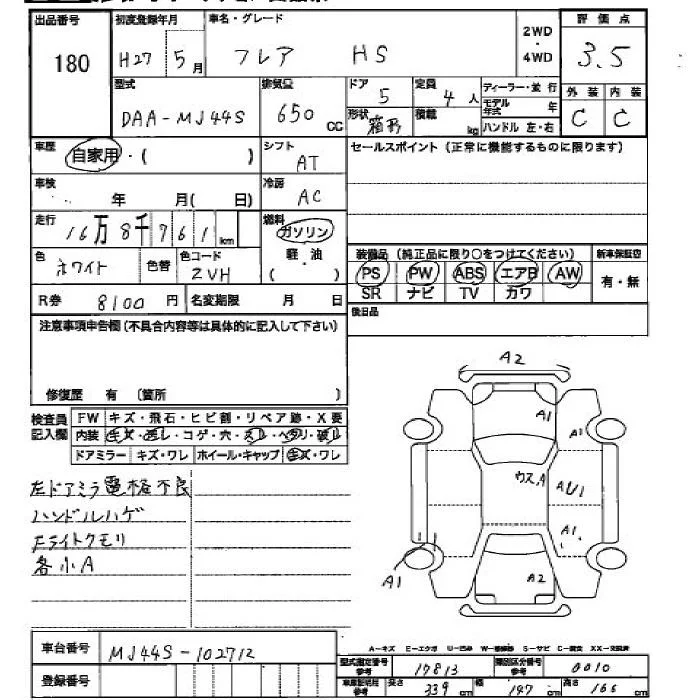 出品番号 初度登録年月 車名・グレード 2WD・4WD 評価点
180 H27 5月 フレア HS 3.5
型式 排気量 ドア 定員 ディーラー・並行 外装 内装
DAA-MJ44S 650 CC 5 4人 モデル年式 年 C C
形状 箱形 積載 kg ハンドル 左・右
車歴 自家用・( ) シフト AT セールスポイント (正常に機能するものに限ります)
車検 年 月( 日) 冷房 AC
走行 16万8千761km 燃料 ガソリン
軽・油
( ・ )
色 ホワイト 色替 色コード ZVH
装備品 (純正品に限り○をつけてください) 新車保証書
PS PW ABS エアB AW 有・無
SR ナビ TV カワ
R券 8100円 名変期限 月 日 後日品
注意事項申告欄(不具合内容等は具体的に記入して下さい)
修復歴 有 (箇所 )
検査員記入欄 FW キズ・飛石・ヒビ割・リペア跡・X要
内装 キズ・汚レ・コゲ・穴・スレ・ヘタリ・破レ
ドアミラー キズ・ワレ ホイール・キャップ キズ・ワレ
左ドアミラ電格不良
ハンドルハゲ
Fライトクモリ
各小A
A2
A1
A1
ウスA
AU1
A1
A1
A2
車台番号 MJ44S-102712
登録番号
A-キズ E-エクボ U-凹み S-サビ
型式指定番号 参考 17813 類別区分番号 参考 0010
長さ 339 cm 幅 147 cm 高さ 166 cm